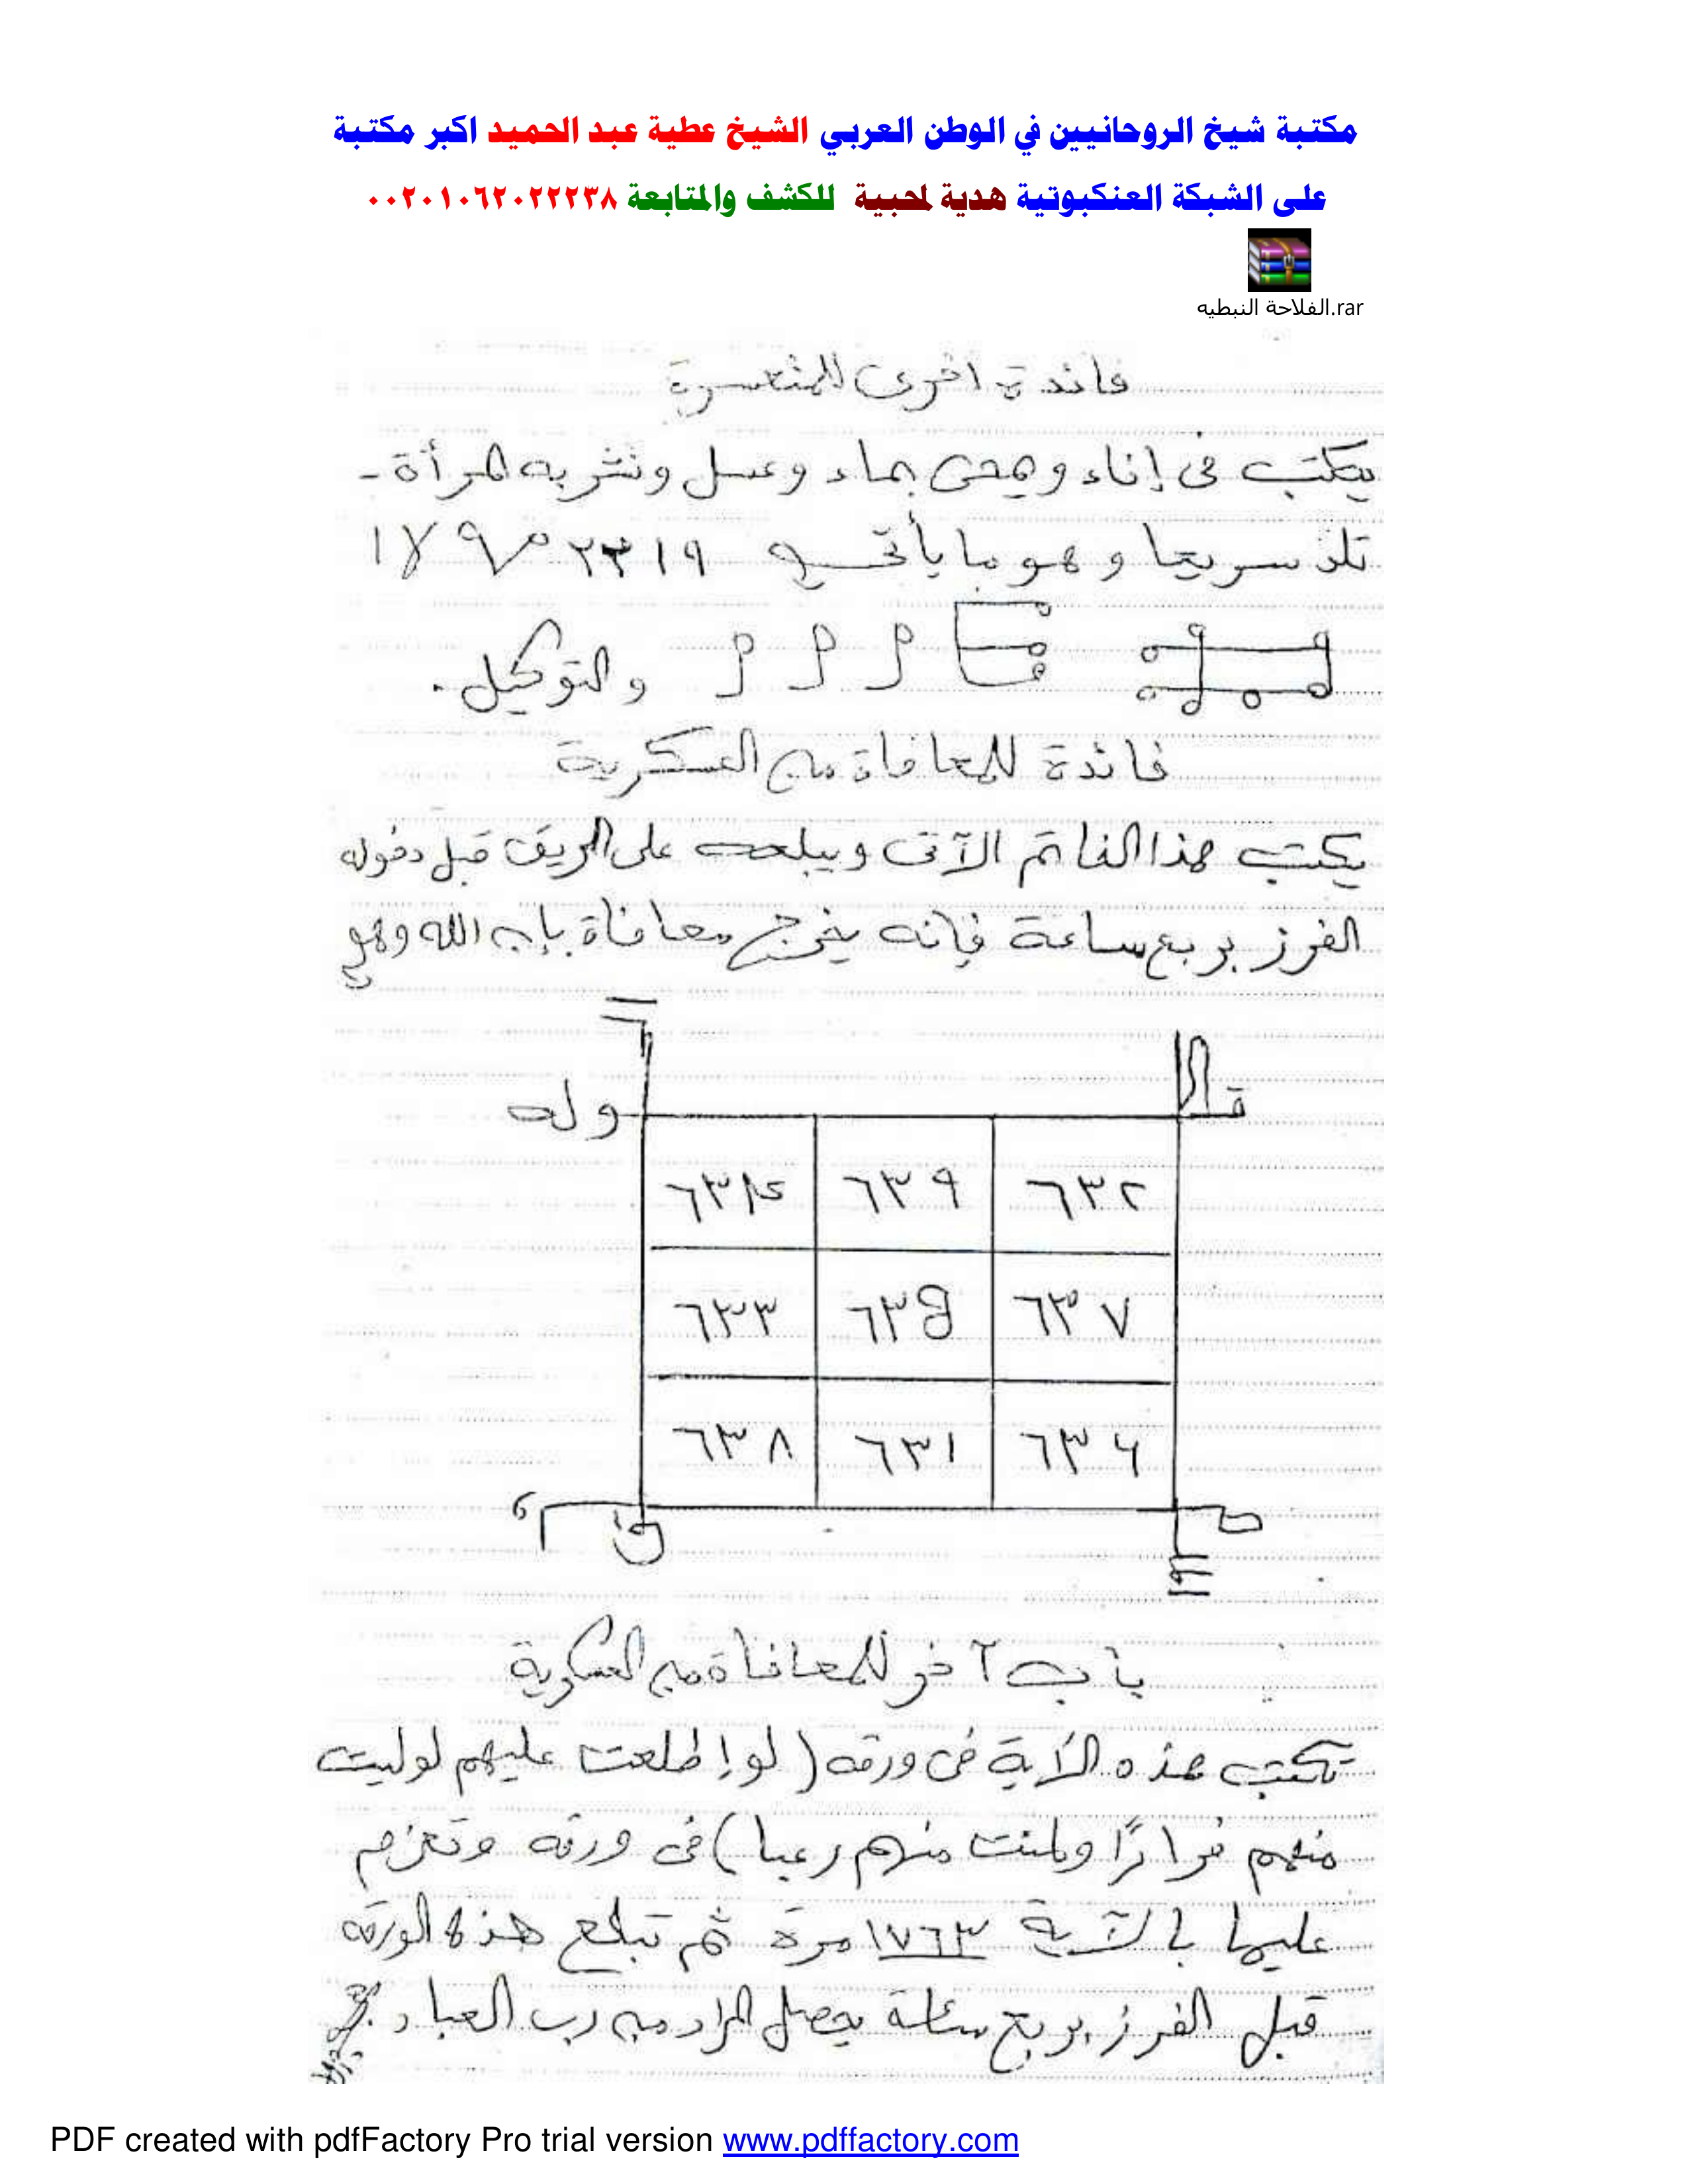 مكتبة شيخ الروحانيين في الوطن العربي الشيخ عطية عبد الحميد اكبر مكتبة
على الشبكة العنكبوتية هدية لمحبية للكشف والمتابعة ٠٠٢٠١٠٦٢٠٢٢٢٣٨
الفلاحة النبطيه.rar
فائدة اخرى للمتعسرة
يكتب فى إناء ويمحى بماء وعسل وتشربه المرأة -
تلد سريعا وهو ما يأتى
والتوكيل .
فائدة للمعافاة من العسكرية
يكتب هذا الخاتم الآتى ويبلعه على الريق قبل دخوله
الفرز بربع ساعة فإنه يخرج معافاة بإن الله وهو
قـا
وله
٦٣٢ ٦٣٩ ٦٣٤
٦٣٧ ٦٣٥ ٦٣٣
٦٣٦ ٦٣١ ٦٣٨
باب آخر للمعافاة من العسكرية
تكتب هذه الآية فى ورقه ( لو إطلعت عليهم لوليت
منهم فرارًا ولملئت منهم رعبا ) فى ورقه وتعزم
عليها بالآية ١٧٦٣ مرة ثم تبلع هذه الورقه
قبل الفرز بربع ساعة يحصل المراد من رب العباد .
PDF created with pdfFactory Pro trial version www.pdffactory.com